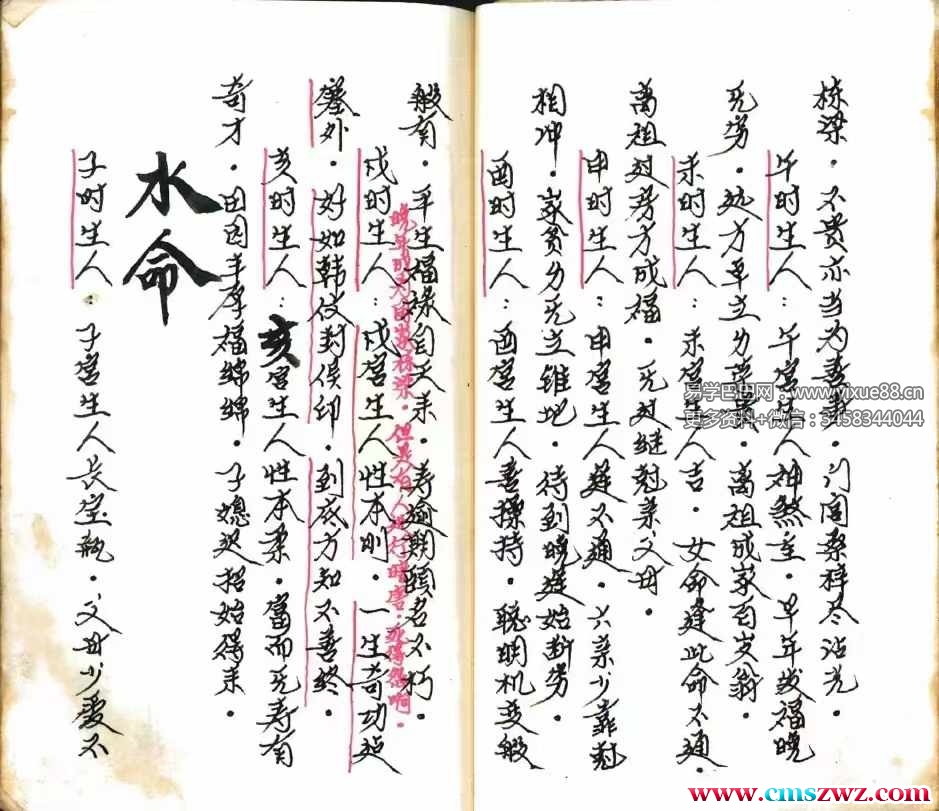 栋梁．不贵亦当为寿彰．门闾桑梓尽沾光
午时生人：午宫生人神煞重．早年发福晚
无劳．处方卓立多荣景．离祖成家百岁翁．
未时生人：未宫生人吉．女命逢此命不通．
离祖过房方成福．无过继克亲父母．
申时生人：申宫生人蹇不通．六亲少靠克
相冲．家贫多无立锥地．待到晚运始断劳．
酉时生人：酉宫生人善操持．聪明机变般
般有．平生福禄自天来．寿逾期颐名不朽．
戌时生人：戌宫生人性本刚．一生奇功边
塞外．好如韩侯封侯印．到底方知不善终．
晚年成为国家栋梁．但是有人进行暗害．死得惨啊．
亥时生人：亥宫生人性本柔．富而无寿有
奇才．田园丰厚福绵绵．子媳迟招始得来．
水命
子时生人：子宫生人长室执．父母少爱不
易学巴巴网：www.yixue88.cn
更多资料+微信：3458344044
www.cmszwz.com